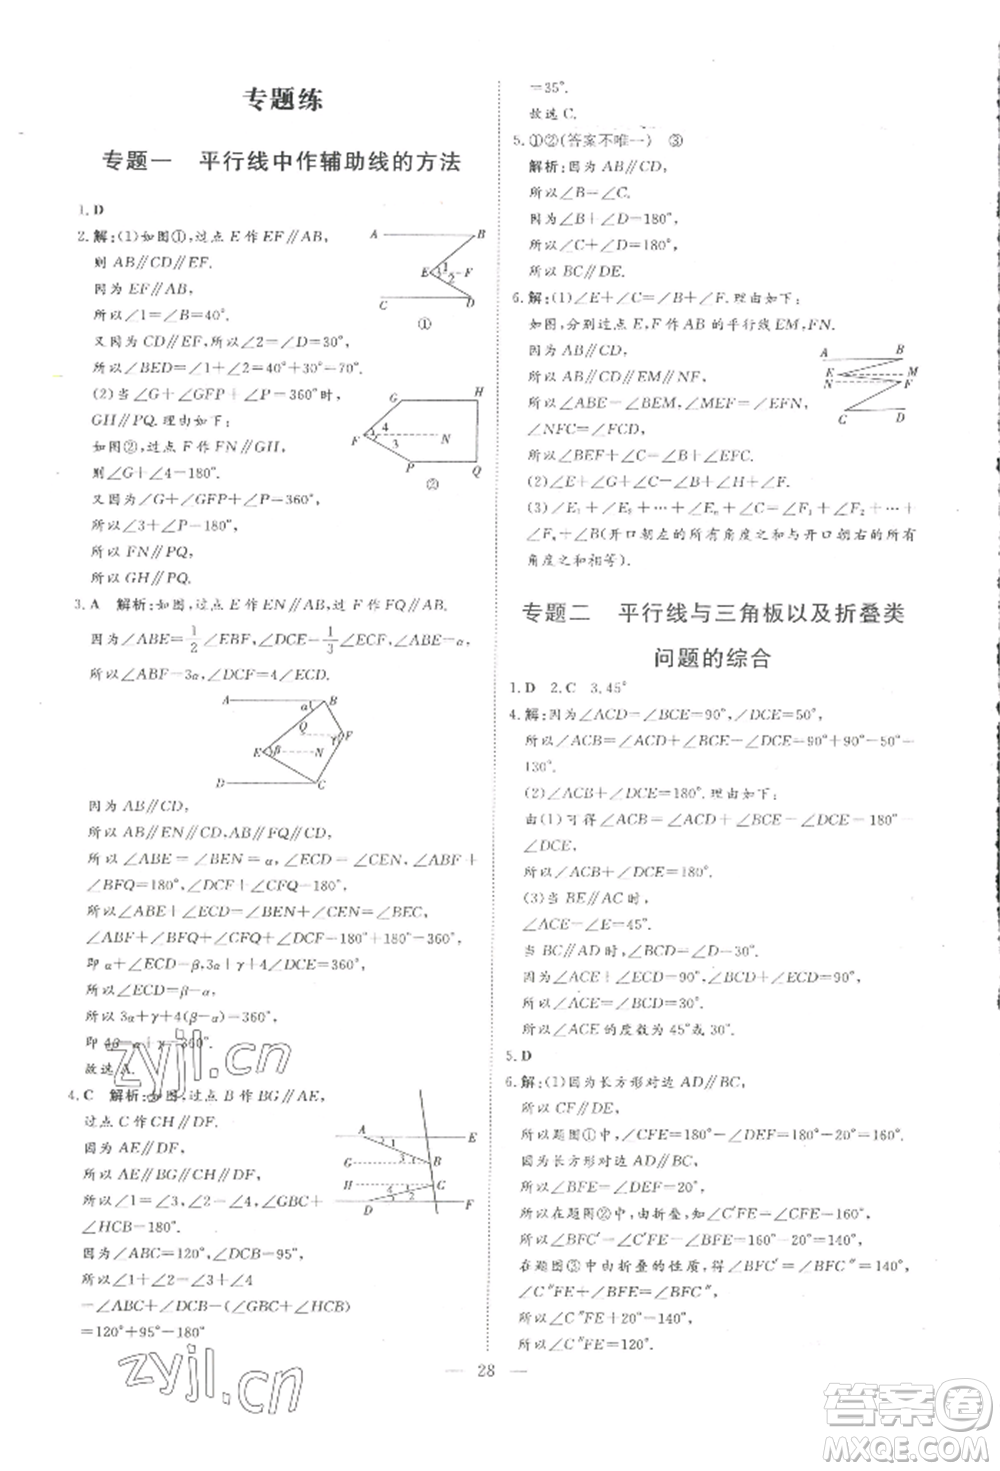 专题练
专题一 平行线中作辅助线的方法
1. D
2. 解:(1)如图①,过点 E 作 EF∥AB,
则 AB∥CD∥EF.
因为 EF∥AB,
所以∠1=∠B=40°.
又因为 CD∥EF,所以∠2=∠D=30°,
所以∠BED=∠1+∠2=40°+30°=70°.
(2)当∠G+∠GFP+∠P=360°时,
GH∥PQ.理由如下:
如图②,过点 F 作 FN∥GH,
则∠G+∠4=180°.
又因为∠G+∠GFP+∠P=360°,
所以∠3+∠P=180°,
所以 FN∥PQ,
所以 GH∥PQ.
A B E 1 2 F C D ①
G H F 4 3 N P Q ②
3. A 解析:如图,过点 E 作 EN∥AB,过点 F 作 FQ∥AB,
因为∠ABE=1/2∠EBF,∠DCE=1/3∠ECF,∠ABE=α,
所以∠ABF=3α,∠DCF=4∠ECD.
A α B Q γ F E β N D C
因为 AB∥CD,
所以 AB∥EN∥CD,AB∥FQ∥CD,
所以∠ABE=∠BEN=α,∠ECD=∠CEN,∠ABF+
∠BFQ=180°,∠DCF+∠CFQ=180°,
所以∠ABE+∠ECD=∠BEN+∠CEN=∠BEC,
∠ABF+∠BFQ+∠CFQ+∠DCF=180°+180°=360°,
即 α+∠ECD=β,3α+γ+4∠DCE=360°,
所以∠ECD=β-α,
所以 3α+γ+4(β-α)=360°,
即 4β-α+γ=360°.
故选 A.
4. C 解析:如图,过点 B 作 BG∥AE,
过点 C 作 CH∥DF.
因为 AE∥DF,
所以 AE∥BG∥CH∥DF,
所以∠1=∠3,∠2=∠4,∠GBC+
∠HCB=180°.
因为∠ABC=120°,∠BCD=95°,
所以∠1+∠2=∠3+∠4
=∠ABC+∠BCD-(∠GBC+∠HCB)
=120°+95°-180°
A E G B H C D F
=35°.
故选 C.
5. ①②(答案不唯一) ③
解析:因为 AB∥CD,
所以∠B=∠C.
因为∠B+∠D=180°,
所以∠C+∠D=180°,
所以 BC∥DE.
6. 解:(1)∠E+∠C=∠B+∠F.理由如下:
如图,分别过点 E,F 作 AB 的平行线 EM,FN.
因为 AB∥CD,
所以 AB∥EM∥NF∥CD,
所以∠ABE=∠BEM,∠MEF=∠EFN,
∠NFC=∠FCD,
所以∠BEF+∠C=∠B+∠EFC.
A B E M N F C D
(2)∠E+∠G=∠B+∠D+∠F.
(3)∠E₁+∠E₂+…+∠Eₙ+∠C=∠F₁+∠F₂+…+
∠Fₙ+∠B(开口朝左的所有角度之和与开口朝右的所有
角度之和相等).
专题二 平行线与三角板以及折叠类
问题的综合
1. D 2. C 3. 45°
4. 解:因为∠ACD=∠BCE=90°,∠DCE=50°,
所以∠ACB=∠ACD+∠BCE-∠DCE=90°+90°-50°=
130°.
(2)∠ACB+∠DCE=180°.理由如下:
由(1)可得∠ACB=∠ACD+∠BCE-∠DCE=180°-
∠DCE,
所以∠ACB+∠DCE=180°.
(3)当 BE∥AC 时,
∠ACE=∠E=45°.
当 BC∥AD 时,∠BCD=∠D=30°.
因为∠ACE+∠ECD=90°,∠ECD+∠BCD=90°,
所以∠ACE=∠BCD=30°.
所以∠ACE 的度数为 45°或 30°.
5. D
6. 解:(1)因为长方形对边 AD∥BC,
所以 CF∥DE,
所以在题图①中,∠CFE=180°-∠DEF=180°-20°=160°.
因为长方形对边 AD∥BC,
所以∠BFE=∠DEF=20°,
所以在题图②中,由折叠,知∠C′FE=∠CFE=160°,
所以∠BFC′=∠C′FE-∠BFE=160°-20°=140°,
在题图③中,由折叠的性质,得∠BFC″=∠BFC′=140°,
所以∠C″FE+∠BFE=140°,
所以∠C″FE+20°=140°,
所以∠C″FE=120°.
28
zyjl.cn
zyjl.cn
答案圈
MXQE.COM